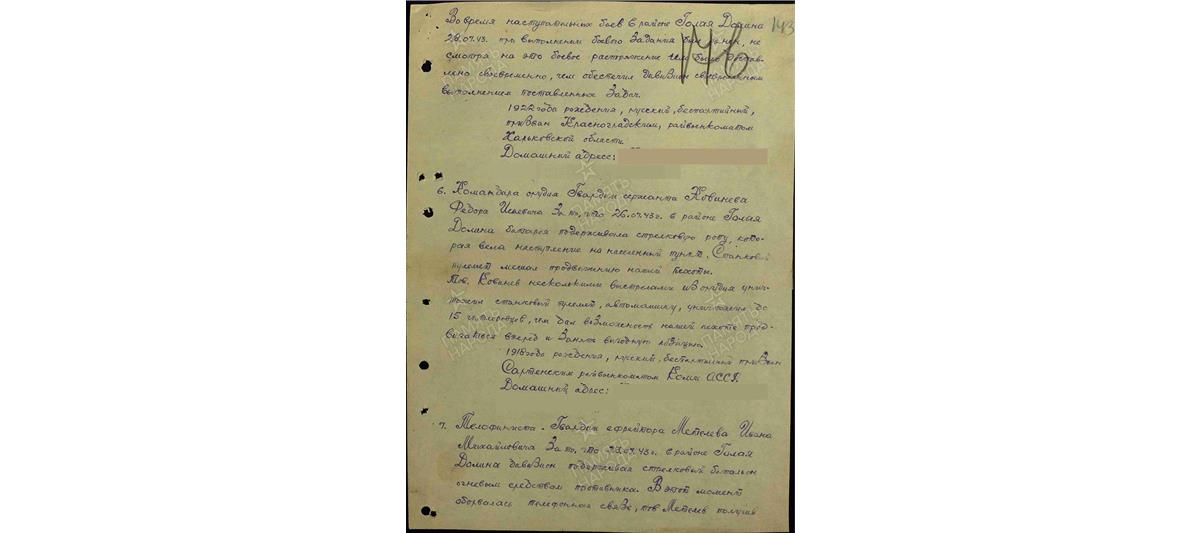 Во время наступательных боев в районе Голая Долина 143
28.07.43. при выполнении боевого задания был ранен, не 146
смотря на это боевое распоряжение им было достав-
лено своевременно, чем обеспечил дивизион своевременным
выполнением поставленных задач.
1922 года рождения, русский, беспартийный,
призван Красноградским, райвоенкоматом
Харьковской области.
Домашний адрес:
6. Командира орудия Гвардии сержанта Ковинева
Федора Исаевича За то, что 26.07.43г. в районе Голая
Долина батарея подерживала стрелковую роту, кото-
рая вела наступление на населенный пункт. Станковый
пулемет мешал продвижению нашей пехоты.
Тов. Ковинев несколькими выстрелами из орудия унич-
тожил станковый пулемет, автомашину, уничтожил до
15 гитлеровцев, чем дал возможность нашей пехоте прод-
вигаться вперед и занять выгодную позицию.
1918 года рождения, русский, беспартийный призван
райвоенкоматом Коми АССР.
Домашний адрес:
7. Телефониста - Гвардии ефрейтора Метелева Ивана
Михайловича За то, что 23.07.43г. в районе Голая
Долина дивизион подерживая стрелковый батальон
огневым средством противника. В этот момент
оборвалась телефонная связь, тов Метелев получил
ПАМЯТЬ НАРОДА
ПАМЯТЬ НАРОДА
ПАМЯТЬ НАРОДА
ПАМЯТЬ НАРОДА
ПАМЯТЬ НАРОДА
ПАМЯТЬ НАРОДА
ПАМЯТЬ НАРОДА